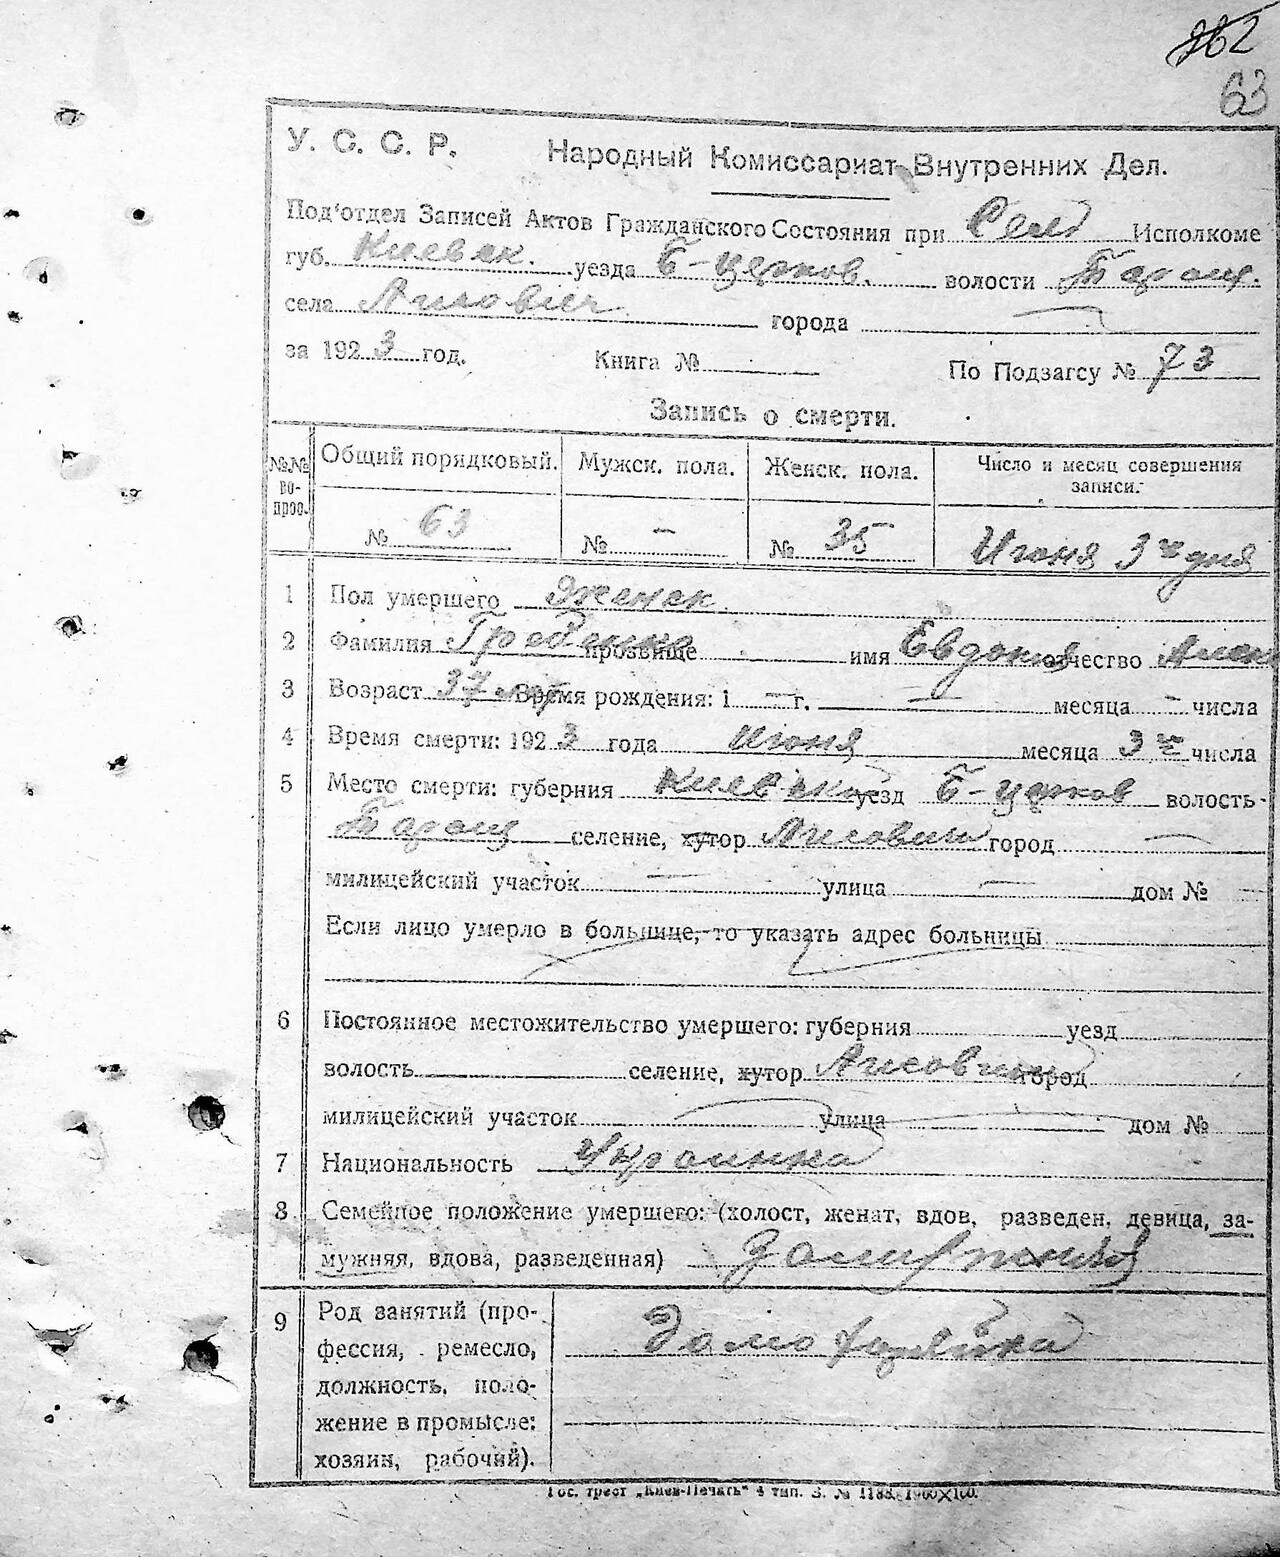 362
63
У. С. С. Р. Народный Комиссариат Внутренних Дел.
Под'отдел Записей Актов Гражданского Состояния при Сел Исполкоме
губ. Киевск. уезда Б-церков. волости Таращ.
села Лисович города —
за 1923 год. Книга № По Подзагсу № 73
Запись о смерти.
№№ вопрос. Общий порядковый. Мужск. пола. Женск. пола. Число и месяц совершения записи.
№ 63 № — № 35 Июня 3го дня
1 Пол умершего Женск
2 Фамилия Гребенко прозвище имя Евдокия отчество
3 Возраст 37 лет Время рождения: 1 — г. — месяца — числа
4 Время смерти: 1923 года Июня месяца 3го числа
5 Место смерти: губерния Киевская уезд Б-церков волость
Таращ селение, хутор Лисович город —
милицейский участок — улица — дом № —
Если лицо умерло в больнице, то указать адрес больницы
6 Постоянное местожительство умершего: губерния уезд
волость селение, хутор Лисович город
милицейский участок улица дом №
7 Национальность Украинка
8 Семейное положение умершего: (холост, женат, вдов, разведен, девица, за-
мужняя, вдова, разведенная) Замужняя
9 Род занятий (про-
фессия, ремесло, Домохозяйка
должность, поло-
жение в промысле:
хозяин, рабочий).
Гос. трест „Киев-Печать" 4 тип. З. № 1188